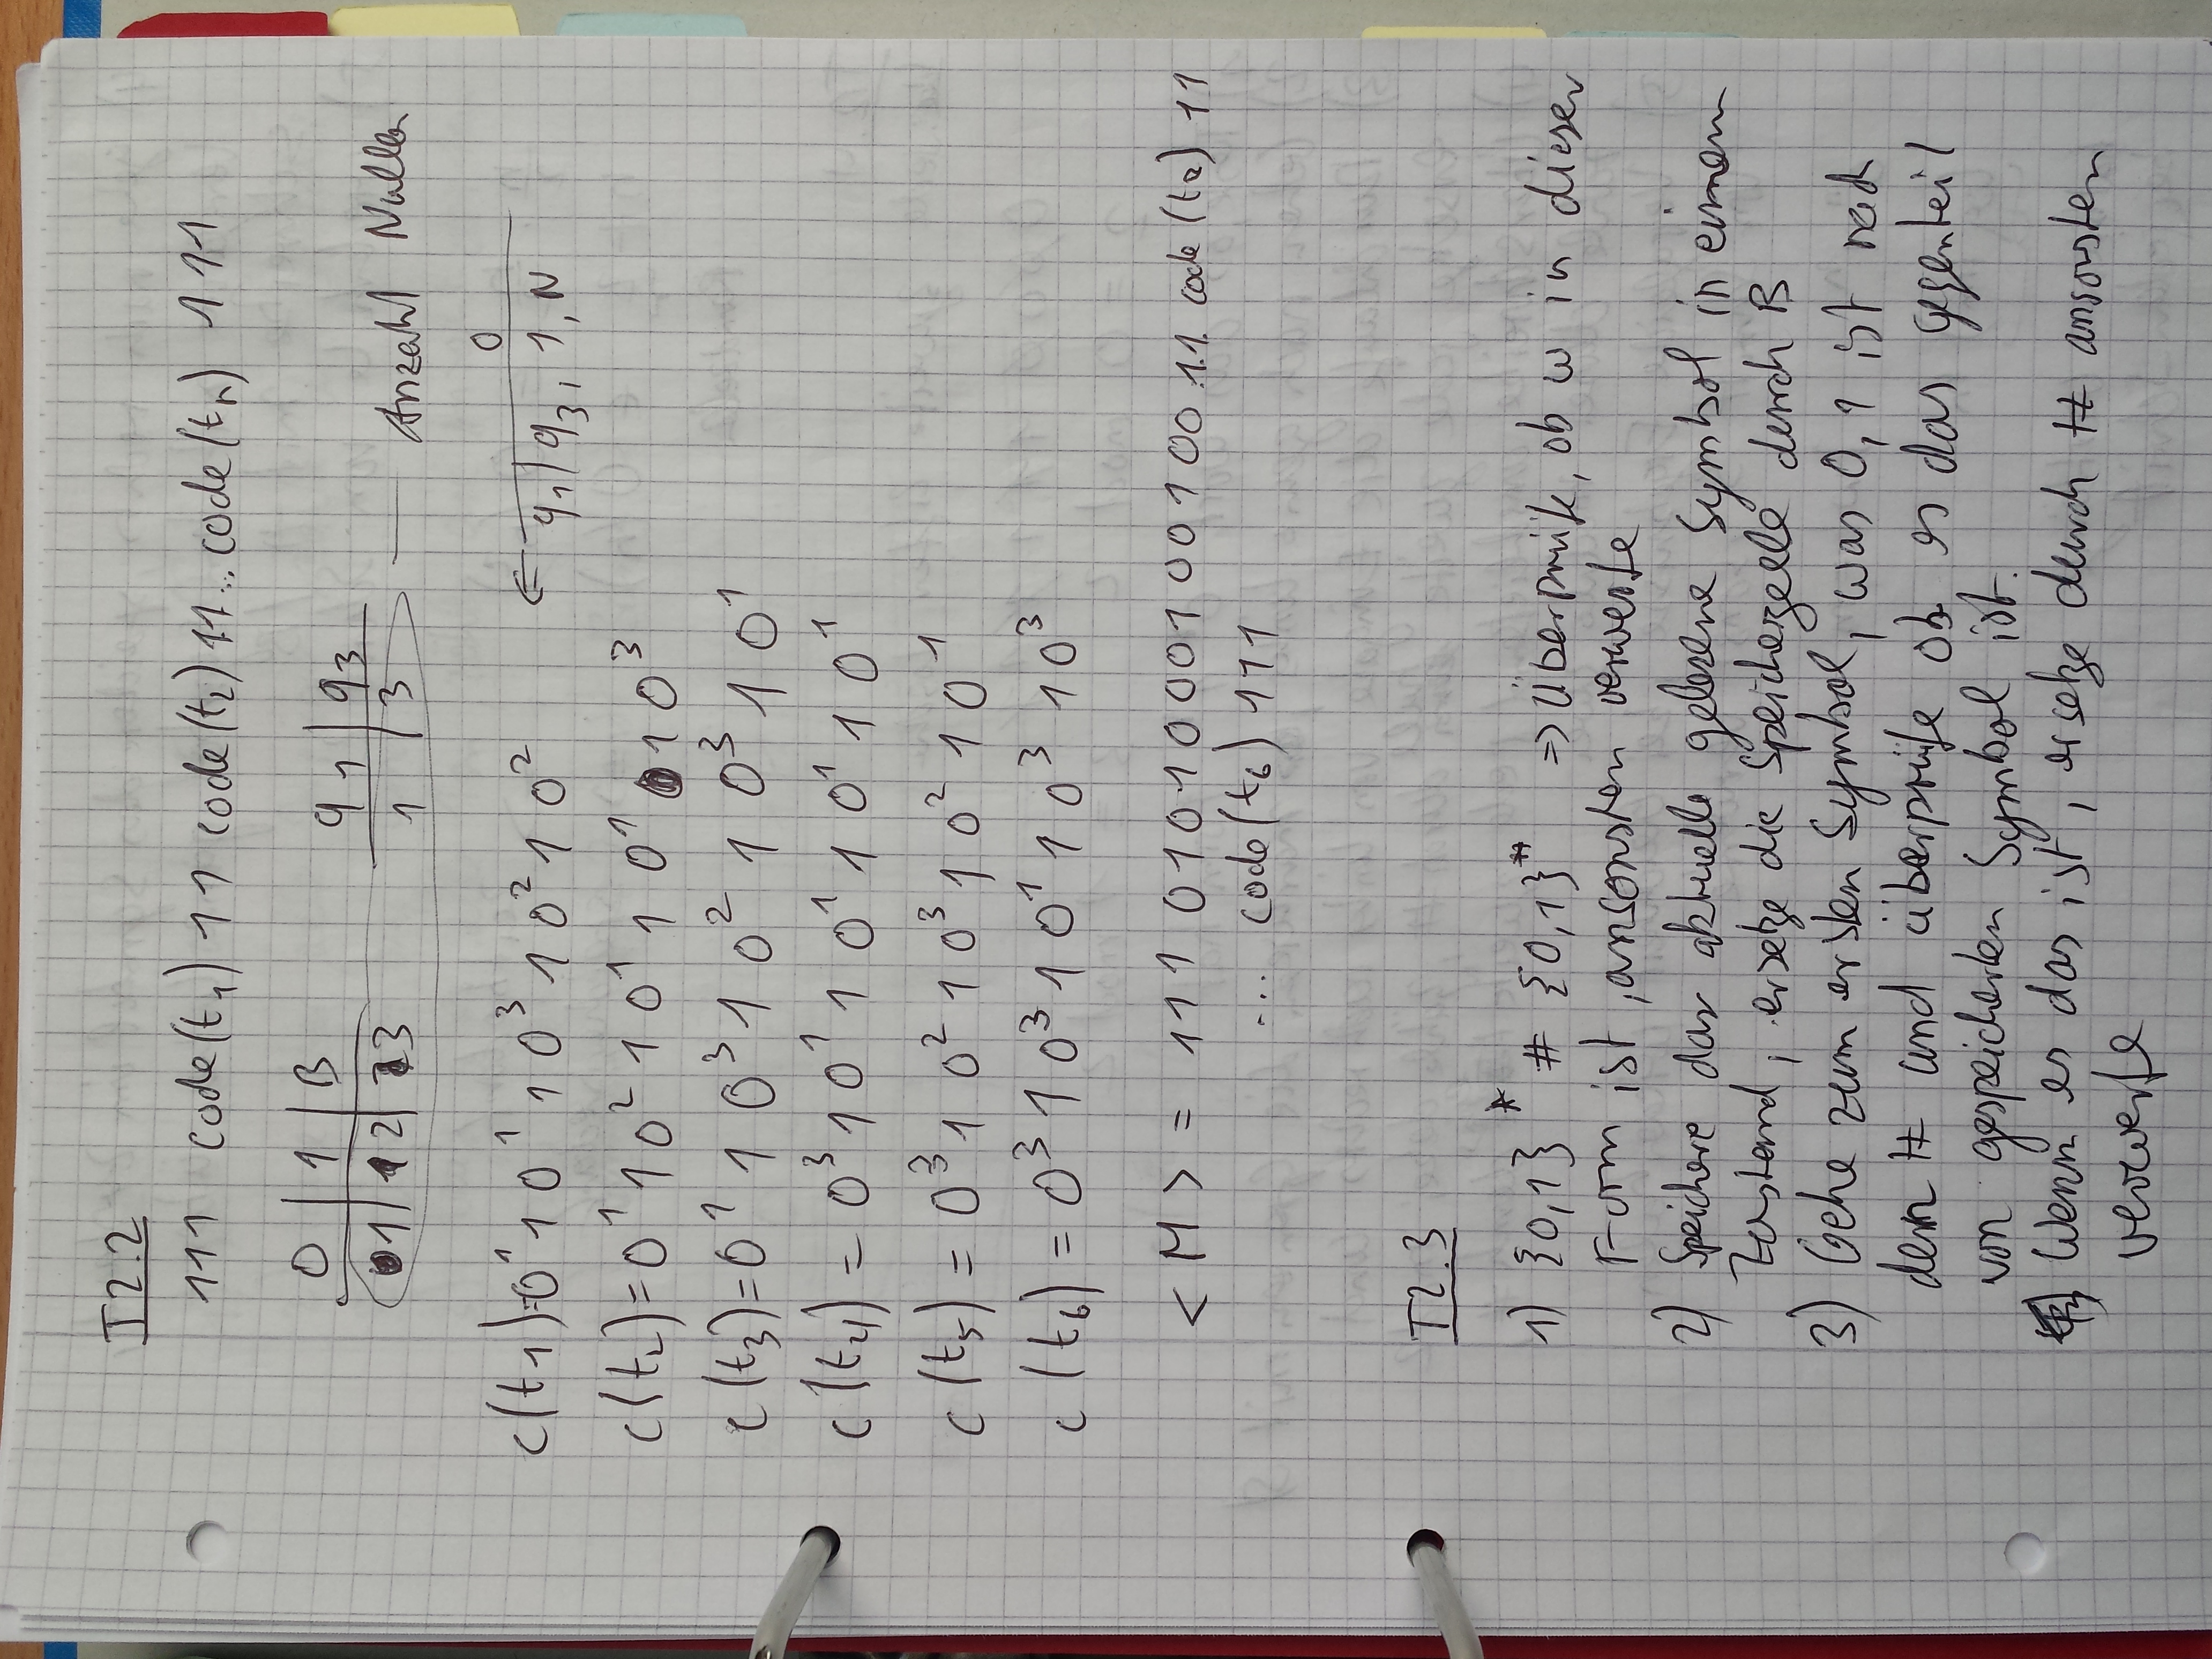 T2.2
111 code(t₁) 11 code(t₂) 11... code(tₙ) 111
0 | 1 | B
1 | 2 | 3
q₁ | q₃
1 | 3
Anzahl Nullen
0
← q₁ | q₃, 1, N
c(t₁)=0¹ 1 0¹ 1 0³ 1 0² 1 0²
c(t₂)=0¹ 1 0² 1 0¹ 1 0¹ 1 0³
c(t₃)=0¹ 1 0³ 1 0² 1 0³ 1 0¹
c(t₄) = 0³ 1 0¹ 1 0¹ 1 0¹ 1 0¹
c(t₅) = 0³ 1 0² 1 0³ 1 0² 1 0¹
c(t₆) = 0³ 1 0³ 1 0¹ 1 0³ 1 0³
<M> = 111 01010001001001 00 11 code(t₂) 11
... code(t₆) 111
T2.3
1) {0,1}* # {0,1}* ⇒ Überprüfe, ob w in dieser
Form ist, ansonsten verwerfe
2) Speichere das aktuelle gelesene Symbol in einem
Zustand, ersetze die Speicherzelle durch B
3) Gehe zum ersten Symbol, was 0,1 ist nach
dem # und überprüfe ob es das gegenteil
von gespeicherten Symbol ist.
Wenn es das ist, ersetze durch # ansonsten
verwerfe